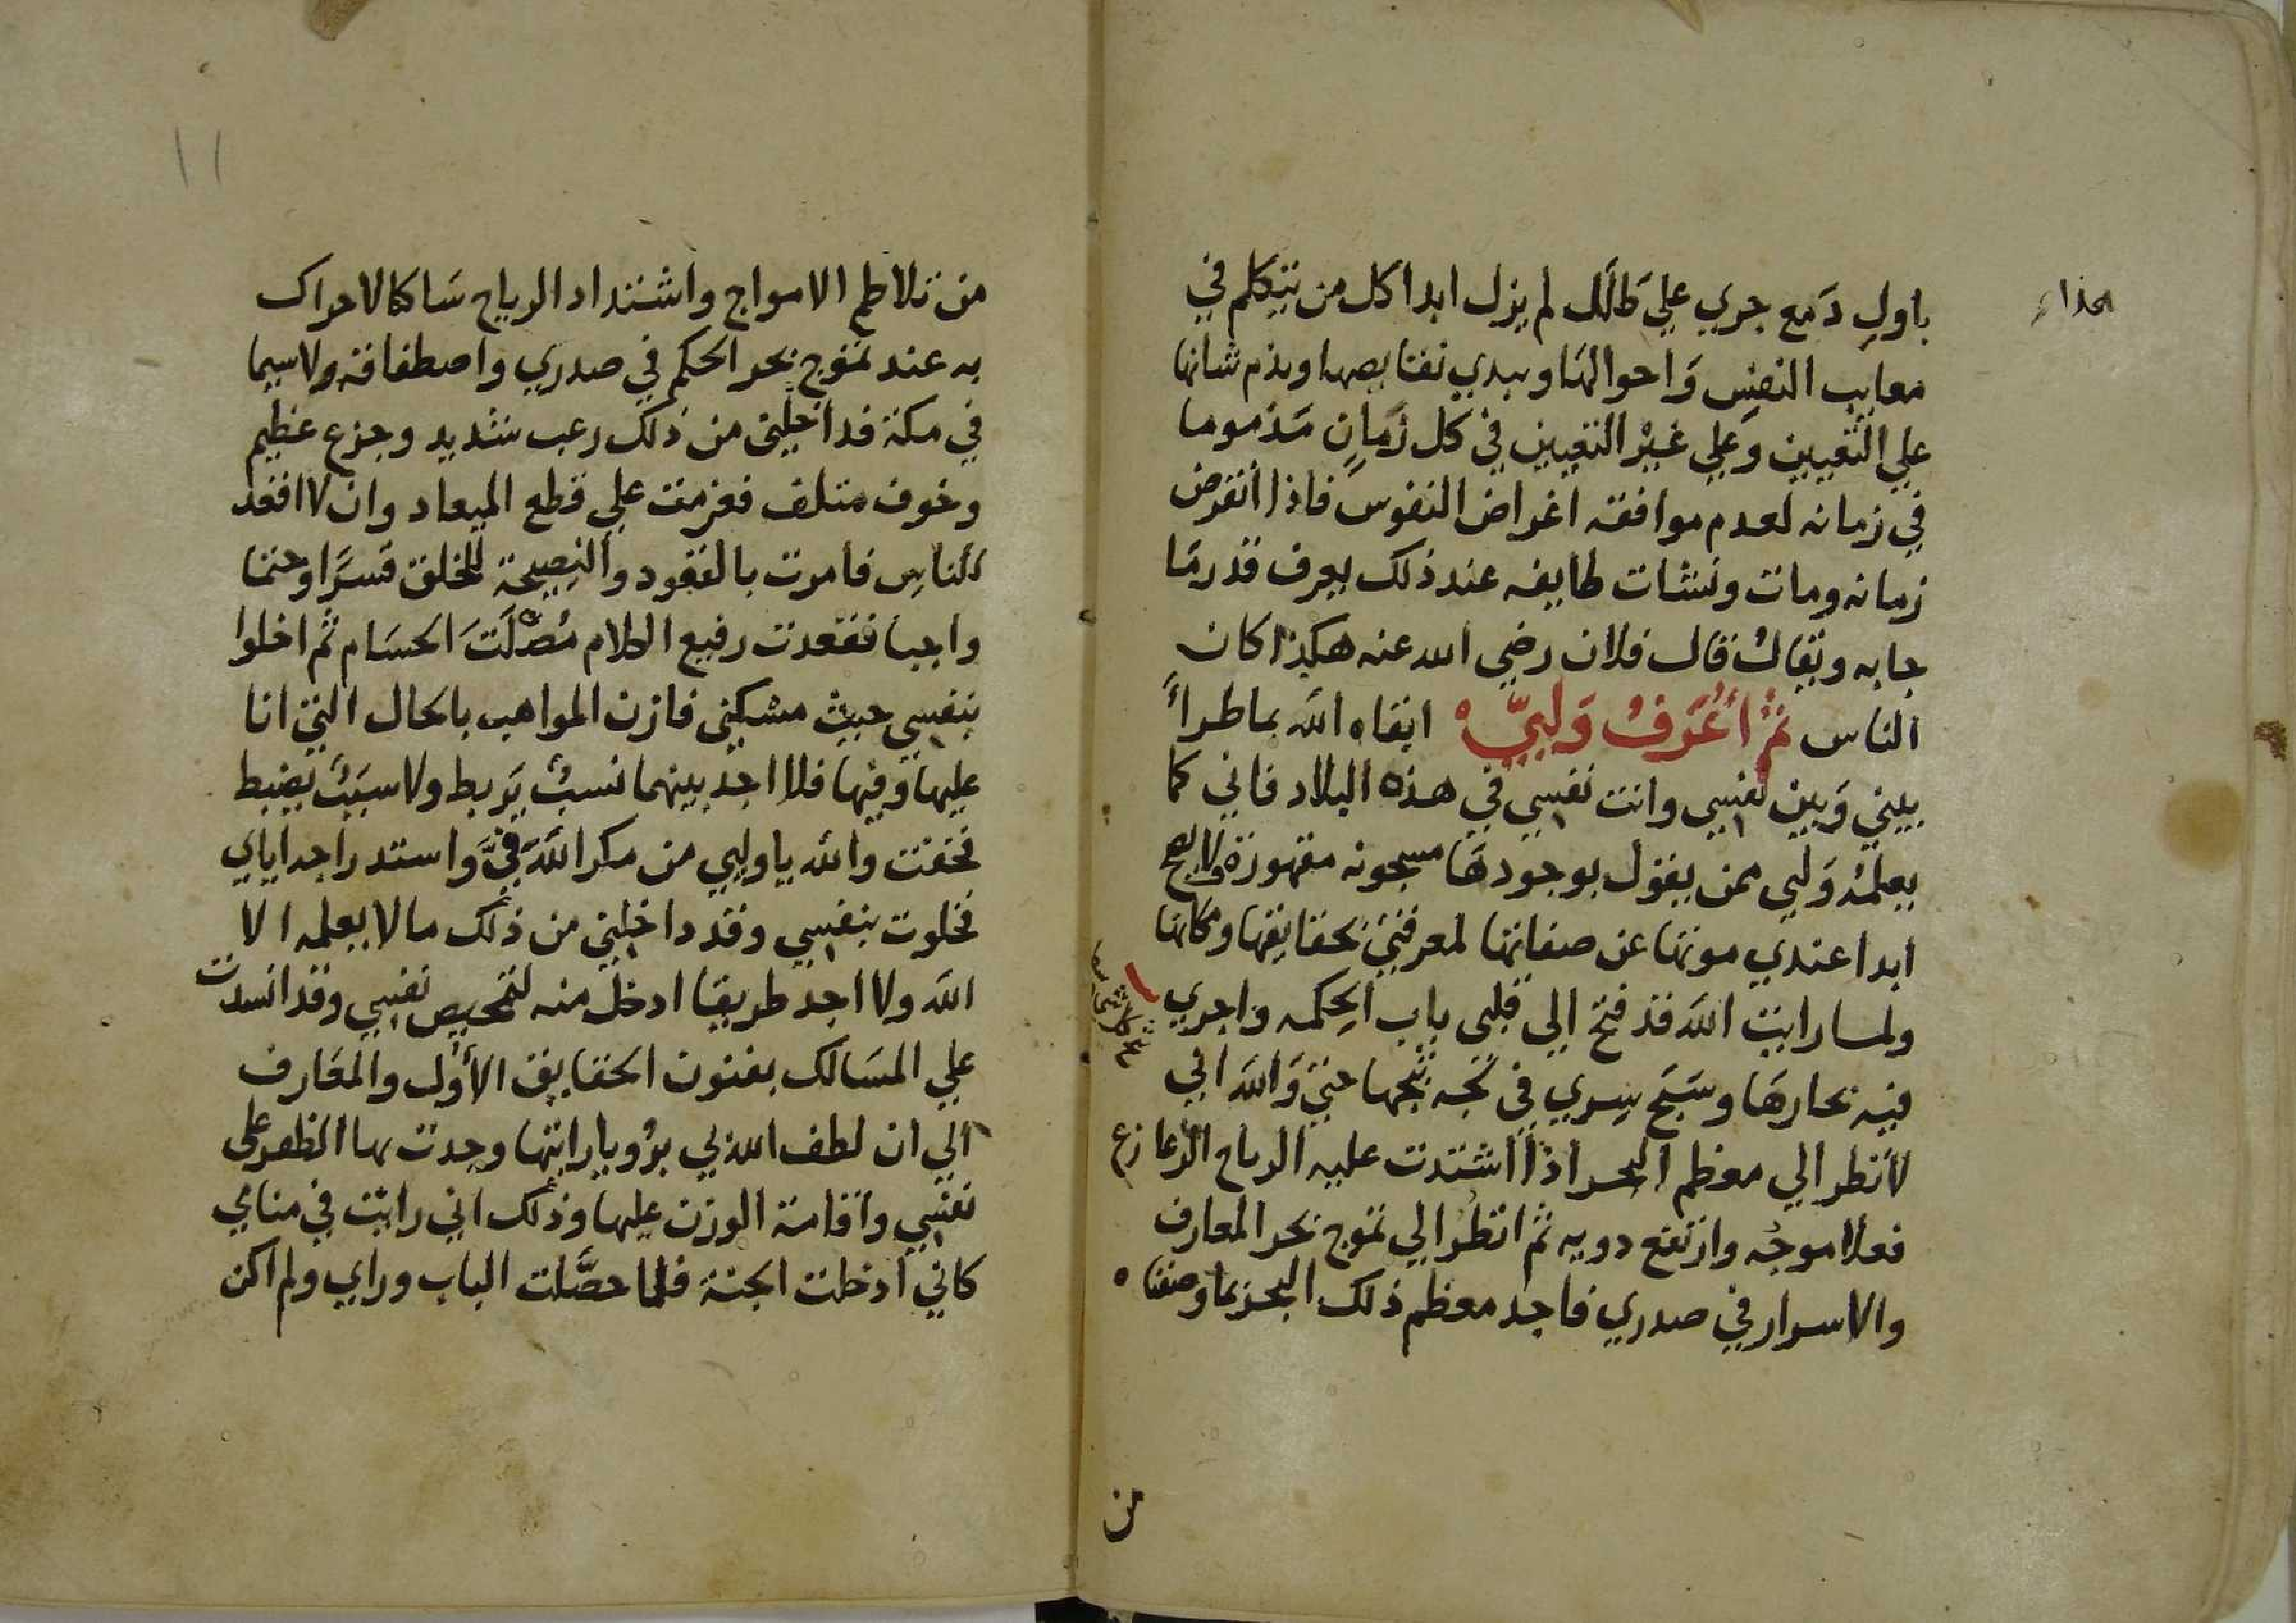 باولِ دَمع جري علي طَلَل لم يزل ابدا كل من يتكلم في
معايب النفس وَاحوالهَا ويبدي نقايصها ويذم شانها
علي التعيين وَعلي غيْر التعيين في كل زمانٍ مَذموما
في زمانه لعدم موافقه اغراض النفوس فاذا انقرض
زمانه ومات ونشات طايفه عند ذلك يعرف قدر مَا
جا به ويقالُ قال فلان رضي الله عنه هكذا كان
الناس ثم أُعَرّفُ وَليّي ابقاه الله بماطرأ
بيني وَبين نفسي وانت نفسي في هذه البلاد فاني كما
يعلمْه وَليي ممن يقول بوجودهَا مسجونه مقهورة ولا يصح
ابدا عندي موتها عن صفاتها لمعرفتي بحقايقها ومكانها
ولما رايت اللَه قد فتح الي قلبي باب الحِكمه واجري
فيه بحارهَا وسَبَح سِري في لجه ثبجها حتي وَاللَه اني
لأنظر الي معظم البحر اذا اشتدت عليه الرياح الزعازع
فعلا موجُه وارتفع دويه ثم انظرُ الي تموج بحر المعارف
والاسرار في صدري فاجد معظم ذلك البحر بما وصفناه
من
١١
من تلاطم الامواج واشتداد الرياح سَاكنا لا حراك
به عند تموج بحر الحكم في صدري واصطفاقه ولا سيما
في مكة فداخلني من ذلك رعب شديد وجزع عظيم
وخوف متلف فعزمت علي قطع الميعاد وان لا اقعد
للناسِ فامرت بالقعود والنصيحة للخلق قسرًا وحتما
واجبا فقعدت رفيع الكلام مُصْلَتَ الحسَام ثم اخلوا
بنفسي حيث مسكني فازن المواهب بالحال التي انا
عليها وفيها فلا اجد بينهما نسبٌ يَربط ولا سبَبٌ يضبط
فخفت والله يا وليي من مكر اللَه فيَّ وَاستدراجه اياي
فخلوت بنفسي وقد داخلني من ذلك ما لا يعلمه الا
اللَه ولا اجد طريقا ادخل منه لتمحيص نفسي وقد انسدت
علي المسَالك بفنون الحقايق الأُوَل والمعَارف
الي ان لطف الله بي برُويا رايتها وجدت بها الظفر علي
نفسي واقامة الوزن عليها وذلك اني رايت في منامي
كاني ادخلت الجنة فلما حصَّلت الباب وراي ولم اكن